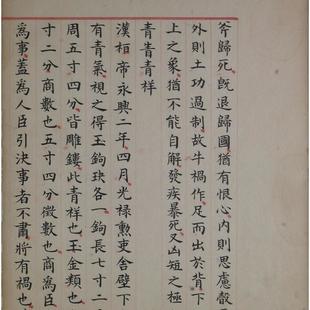 斧歸死旣退歸國猶有恨心內則思慮
外則土功過制故牛禍作足而出於背下
上之象猶不能自解發疾暴死又凶短之極
青眚青祥
漢桓帝永興二年四月光祿勲吏舍壁下
有青氣視之得玉鉤玦各一鉤長七寸二
周五寸四分皆雕鏤此青祥也玉金類也
寸二分商數也五寸四分徵數也商爲臣
爲事蓋爲人臣引決事者不肅將有禍也